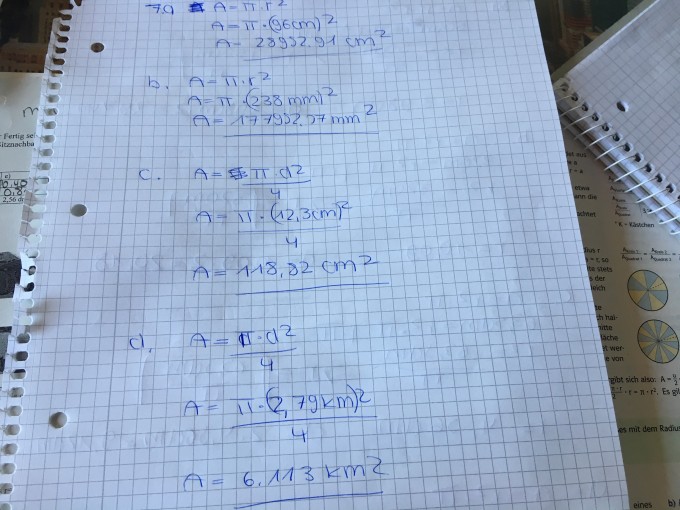 7.a A = π·r²
A = π·(96cm)²
A = 28952.91 cm²
b. A = π·r²
A = π·(238mm)²
A = 177952.37 mm²
c. A = π·d²
4
A = π·(12,3cm)²
4
A = 118,82 cm²
d. A = π·d²
4
A = π·(2,79km)²
4
A = 6.113 km²
Fertig
2,56
etwa
* K = Kästchen
stets
s der
fläche
e von
gibt sich also: A =
= π · r². Es
es mit dem Radius
eines b)